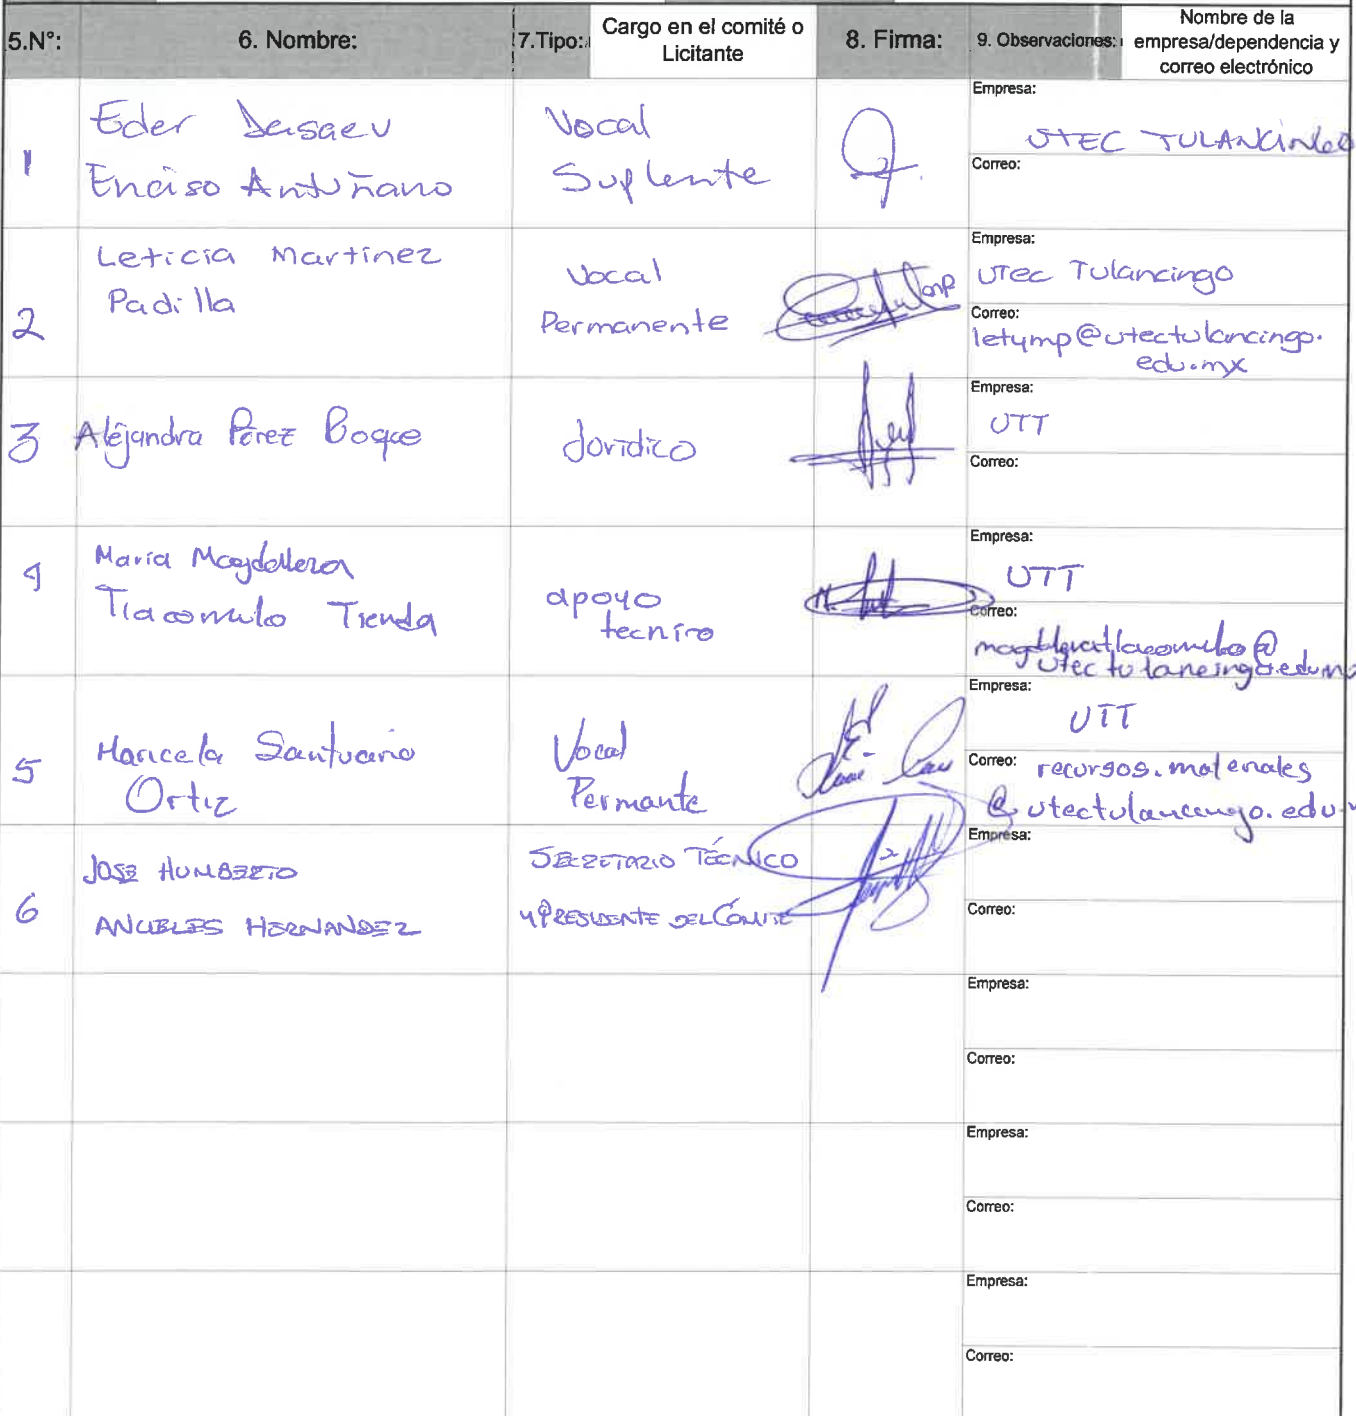 5.N°: 6. Nombre: 7.Tipo: Cargo en el comité o Licitante 8. Firma: 9. Observaciones: Nombre de la empresa/dependencia y correo electrónico
1 Eder Dasaev
Enciso Antuñano
Vocal
Suplente
Empresa:
UTEC TULANCINGO
Correo:
2 Leticia Martinez
Padilla
Vocal
Permanente
Empresa:
UTec Tulancingo
Correo:
letymp@utectulancingo.
edu.mx
3 Alejandra Pérez Boque
Jurídico
Empresa:
UTT
Correo:
4 María Magdalena
Tlacomulo Tienda
apoyo
tecniro
Empresa:
UTT
Correo:
magdalenatlacomulo@
utectulancingo.edu.m
5 Maricela Santuario
Ortiz
Vocal
Permante
Empresa:
UTT
Correo: recursos.materiales
@utectulancingo.edu.
6 JOSE HUMBERTO
ANGELES HERNANDEZ
SECRETARIO TÉCNICO
y PRESIDENTE DEL COMITE
Empresa:
Correo:
Empresa:
Correo:
Empresa:
Correo:
Empresa:
Correo: